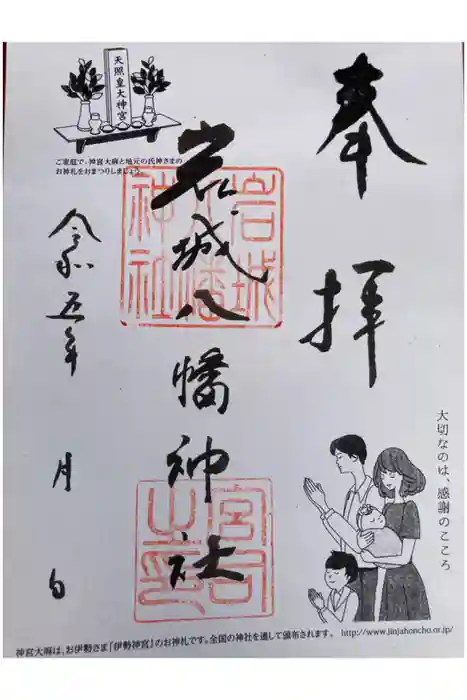 奉拝
大切なのは、感謝のこころ
岩城八幡神社
岩城
八幡
神社
宮司
之印
天照皇大神宮
ご家庭で、神宮大麻と地元の氏神さまの
お神札をおまつりしましょう
令和五年 月 日
神宮大麻は、お伊勢さま『伊勢神宮』のお神札です。全国の神社を通して頒布されます。 http://www.jinjahoncho.or.jp/